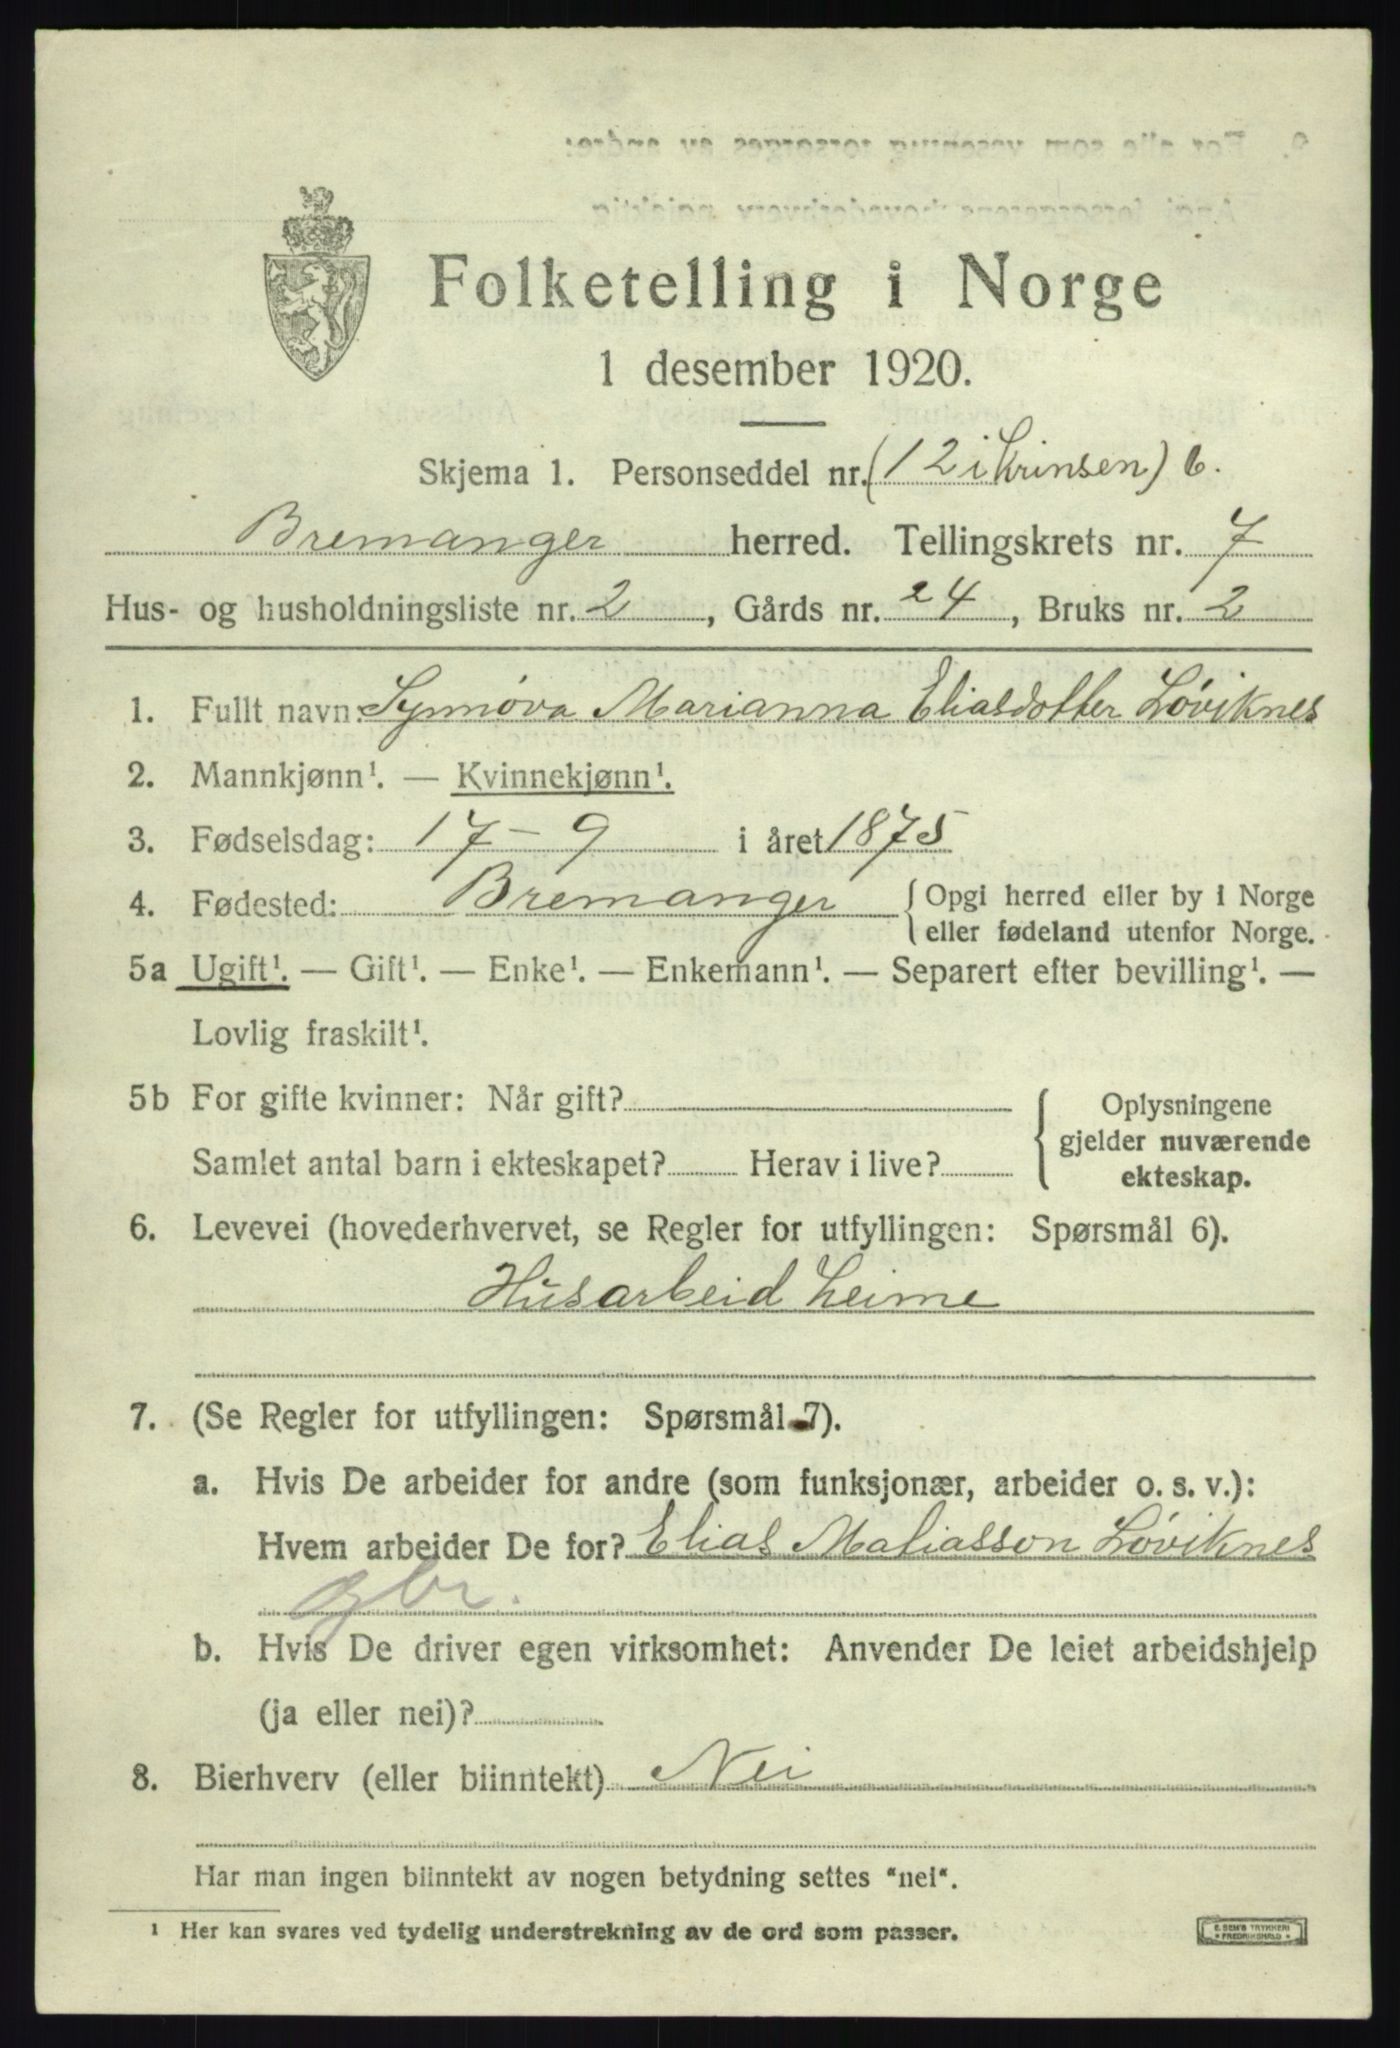 Folketelling i Norge
1 desember 1920.
Skjema 1. Personseddel nr. (12 i Krinsen) 6.
Bremanger herred. Tellingskrets nr. 7
Hus- og husholdningsliste nr. 2, Gårds nr. 24, Bruks nr. 2
1. Fullt navn: Synnøva Marianna Eliasdotter Løviknes
2. Mannkjønn¹. — Kvinnekjønn¹.
3. Fødselsdag: 17-9 i året 1875
4. Fødested: Bremanger { Opgi herred eller by i Norge
eller fødeland utenfor Norge.
5a Ugift¹. — Gift¹. — Enke¹. — Enkemann¹. — Separert efter bevilling¹. —
Lovlig fraskilt¹.
5b For gifte kvinner: Når gift? { Oplysningene
gjelder nuværende
Samlet antal barn i ekteskapet? Herav i live?
ekteskap.
6. Levevei (hovederhvervet, se Regler for utfyllingen: Spørsmål 6).
Husarbeid heime
7. (Se Regler for utfyllingen: Spørsmål 7).
a. Hvis De arbeider for andre (som funksjonær, arbeider o. s. v.):
Hvem arbeider De for? Elias Matiasson Løviknes
gbr.
b. Hvis De driver egen virksomhet: Anvender De leiet arbeidshjelp
(ja eller nei)?
8. Bierhverv (eller biinntekt) Nei
Har man ingen biinntekt av nogen betydning settes "nei".
¹ Her kan svares ved tydelig understrekning av de ord som passer.
E. SEM'S TRYKKERI
FREDRIKSHALD